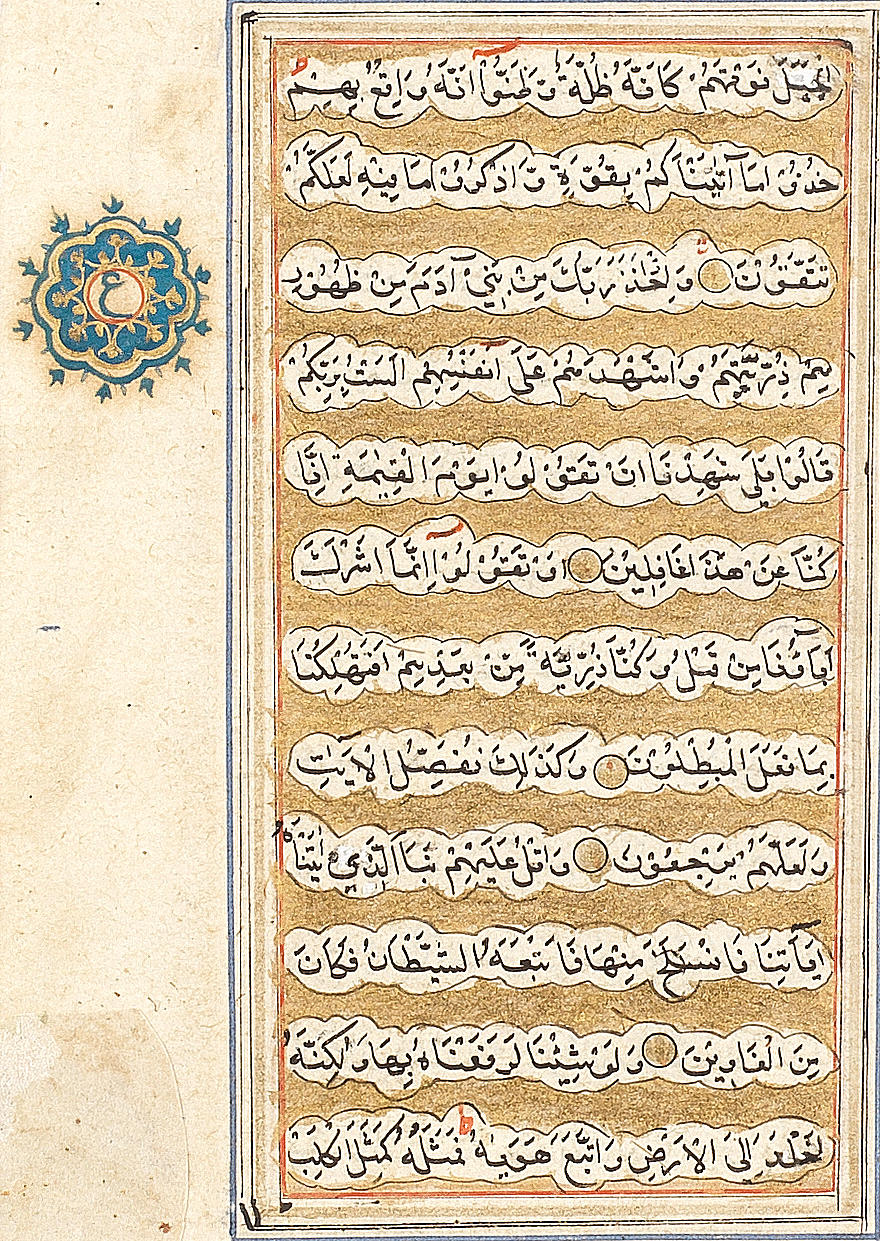 الجبل فوقهم كانه ظلة وظنوا انه واقع بهم
خذوا ما آتيناكم بقوة واذكروا ما فيه لعلكم
تتقون ○ واخذ ربك من بني آدم من ظهور
هم ذريتهم واشهدهم على انفسهم الست بربكم
قالوا بلى شهدنا ان تقولوا يوم القيمة انا
كنا عن هذا غافلين ○ او تقولوا انما اشرك
آباؤنا من قبل وكنا ذرية من بعدهم افتهلكنا
بما فعل المبطلون ○ وكذلك نفصل الايت
ولعلهم يرجعون ○ واتل عليهم نبا الذي اتينا
ه
اياتنا فانسلخ منها فاتبعه الشيطان فكان
من الغاوين ○ ولو شئنا لرفعناه بها ولكنه
اخلد الى الارض واتبع هويه فمثله كمثل الكلب
ع